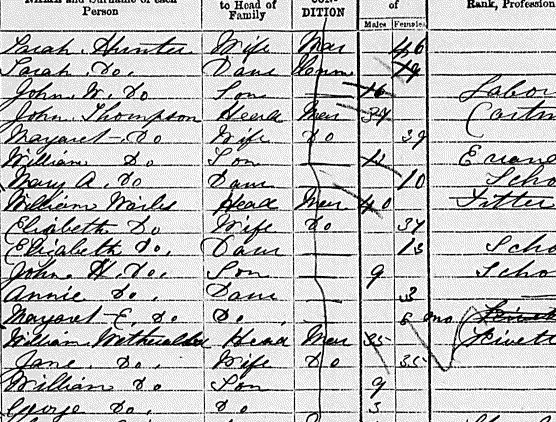 Name and Surname of each Person | to Head of Family | CON-DITION | of Males Females | Rank, Profession
Sarah Hunter Wife Mar 46
Sarah Do. Daur 19
John W. Do Son — 16 Labou
John Thompson Head Mar 39
Margaret Do Wife Do 39
William Do Son —
Mary A. Do Daur — 10 Scho
William Head Mar 40 Fitter
Elizabeth Do Wife Do 37
Elizabeth Do. Daur — 13 Scho
John H. Do. Son — 9 Scho
Annie Do. Daur — 3
Margaret E. Do Do. 6 mo
William Head Mar 35
Jane Do. Wife Do 35
William Do Son 9
George Do. Do 3